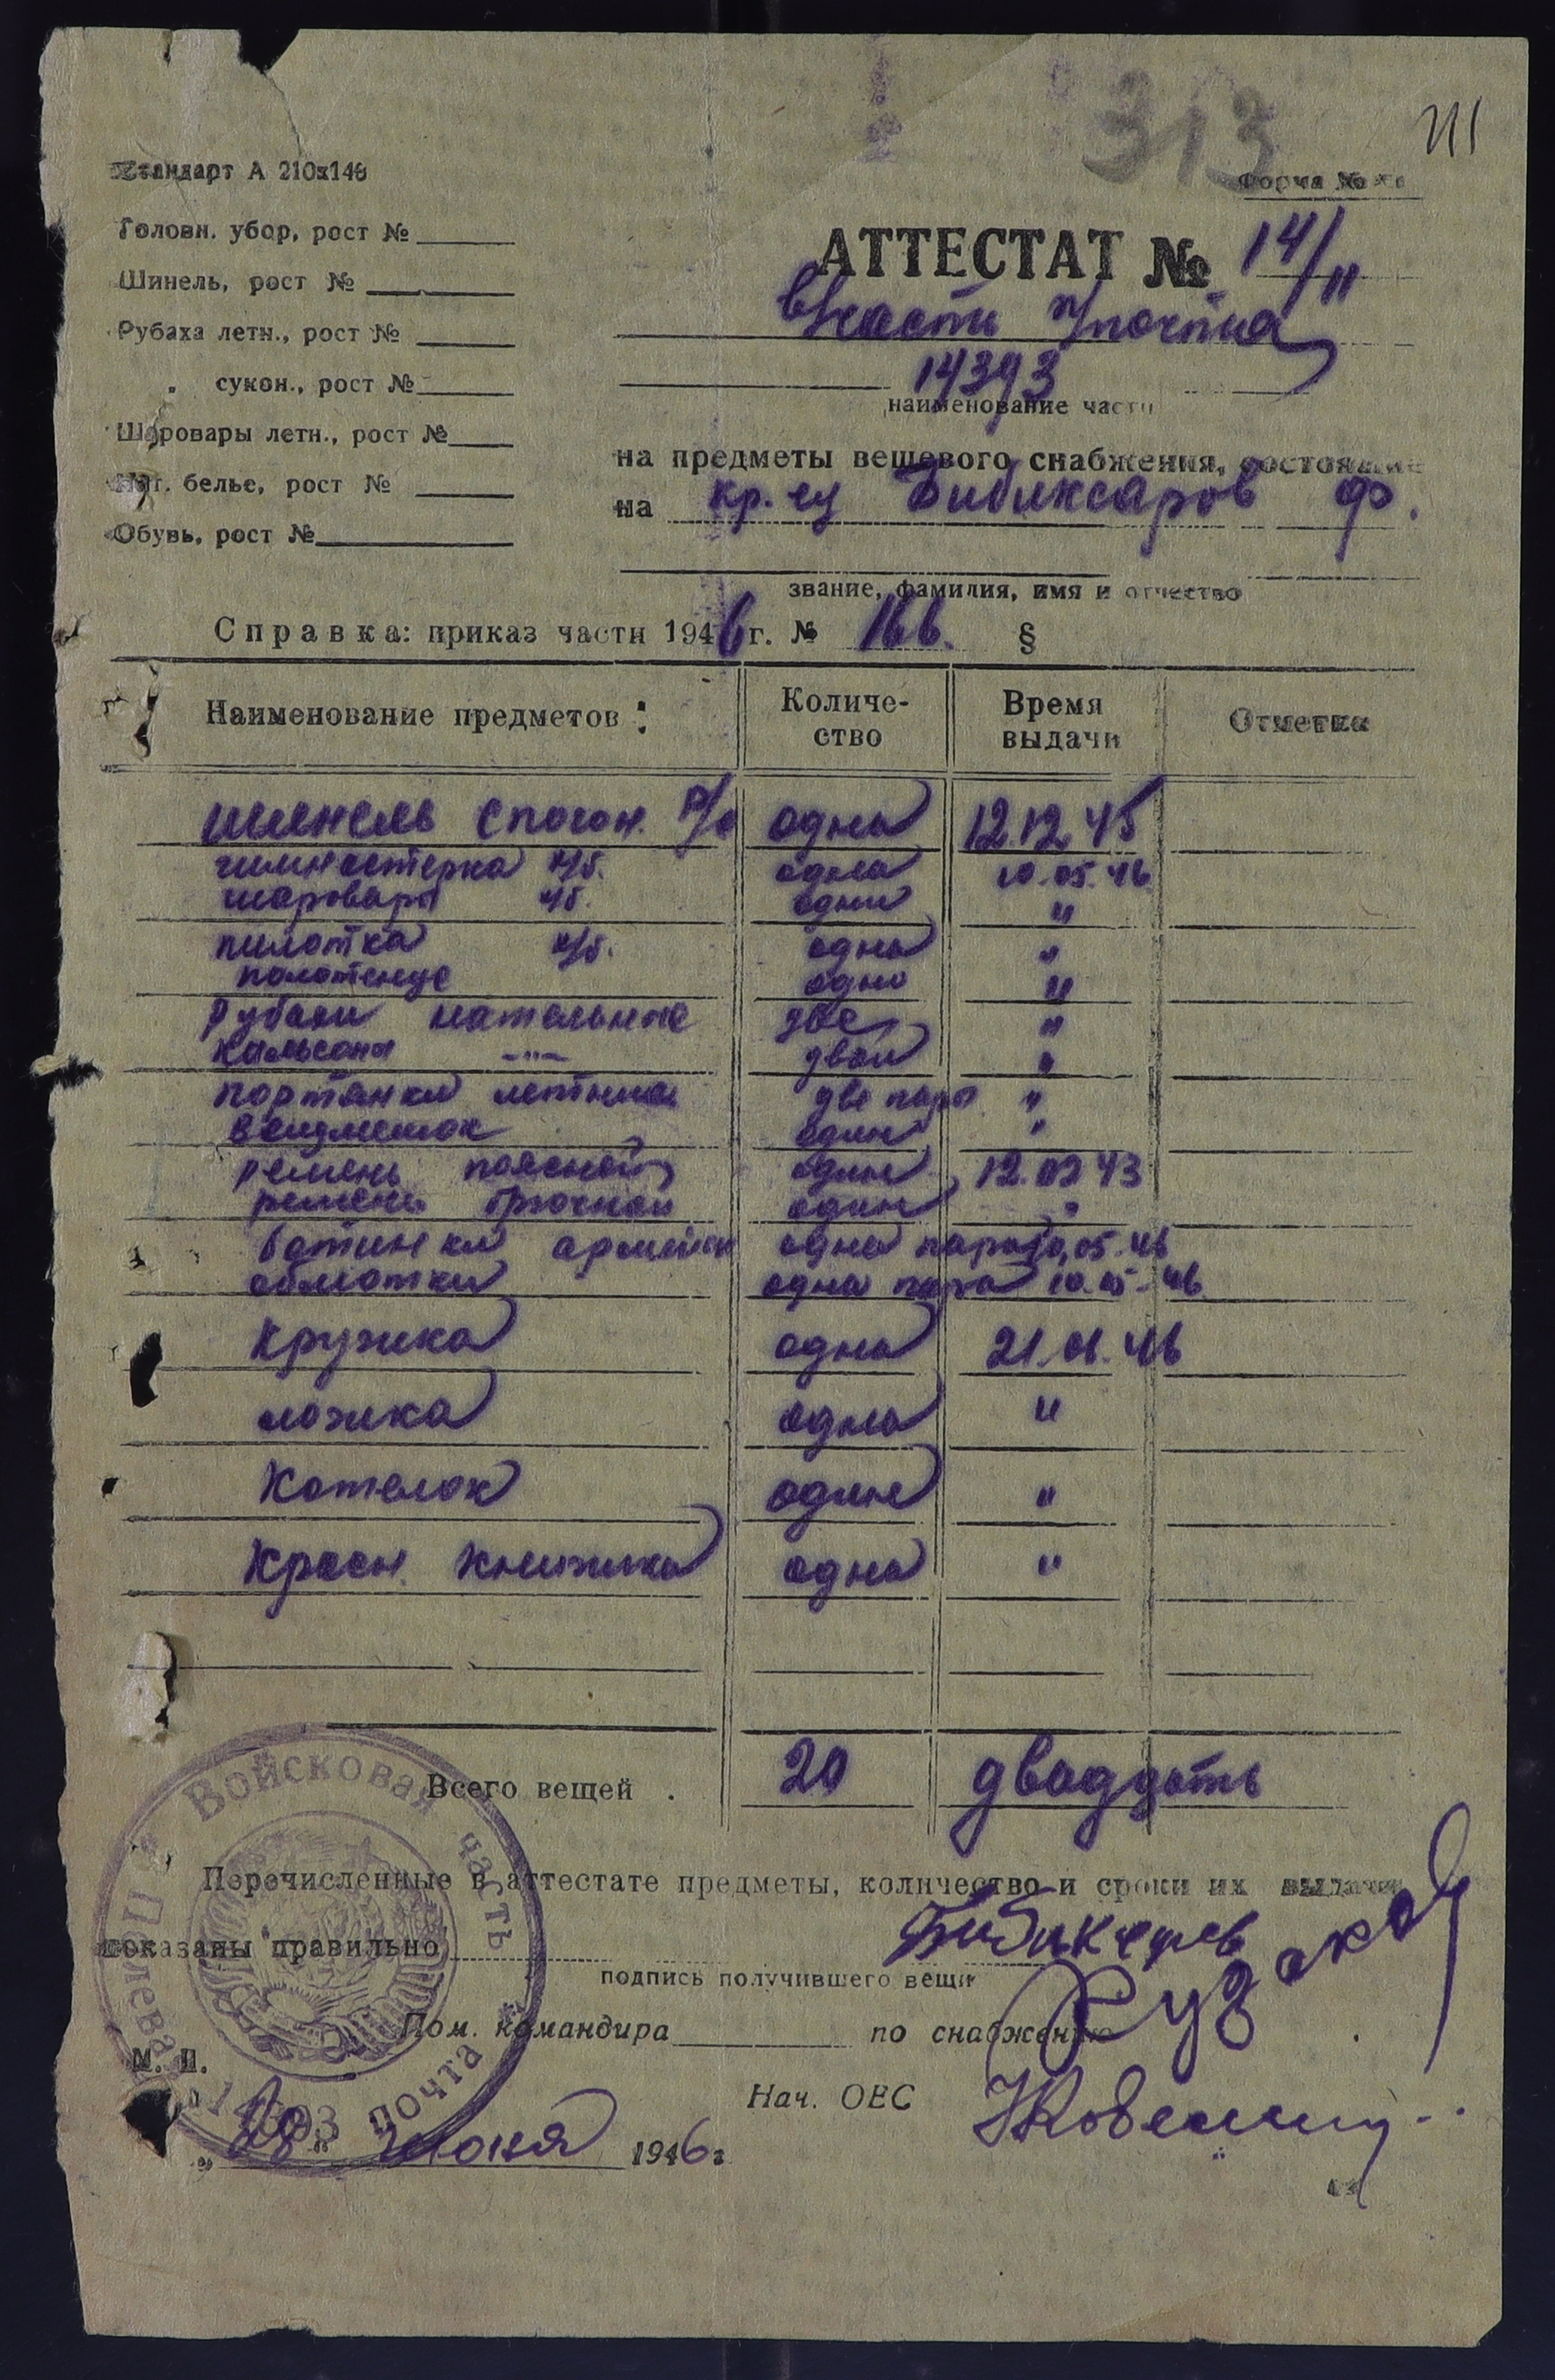 313
Стандарт А 210х148
Форма №
Головн. убор, рост №
Шинель, рост №
Рубаха летн., рост №
„ сукон., рост №
Шаровары летн., рост №
Нат. белье, рост №
Обувь, рост №
АТТЕСТАТ № 14/11
в/части п/почта
14393
наименование части
на предметы вещевого снабжения, состоящие
на кр. ец Бибиксаров Ф.
звание, фамилия, имя и отчество
Справка: приказ части 1946 г. № 166. §
Наименование предметов : Количество Время выдачи Отметка
шинель с погон. одна 12.12.45
гимнастерка х/б. одна 10.05.46
шаровары х/б. одни "
пилотка х/б. одна "
полотенце одно "
Рубахи нательные две "
Кальсоны -"- двои "
портянки летние две пары "
вещмешок один "
ремень поясной один 12.02 43
ремень брючной один "
ботинки армейск одна пара 10.05.46
обмотки одна пара 10.05.46
Кружка одна 21.01.46
ложка одна "
Котелок один "
Красн. книжка одна "
Всего вещей . 20 двадцать
Перечисленные в аттестате предметы, количество и сроки их выдачи
показаны правильно
подпись получившего вещи
Пом. командира по снабжению
М. П.
Нач. ОВС
„28" июня 1946 г.
Войсковая часть
Полевая почта
14393